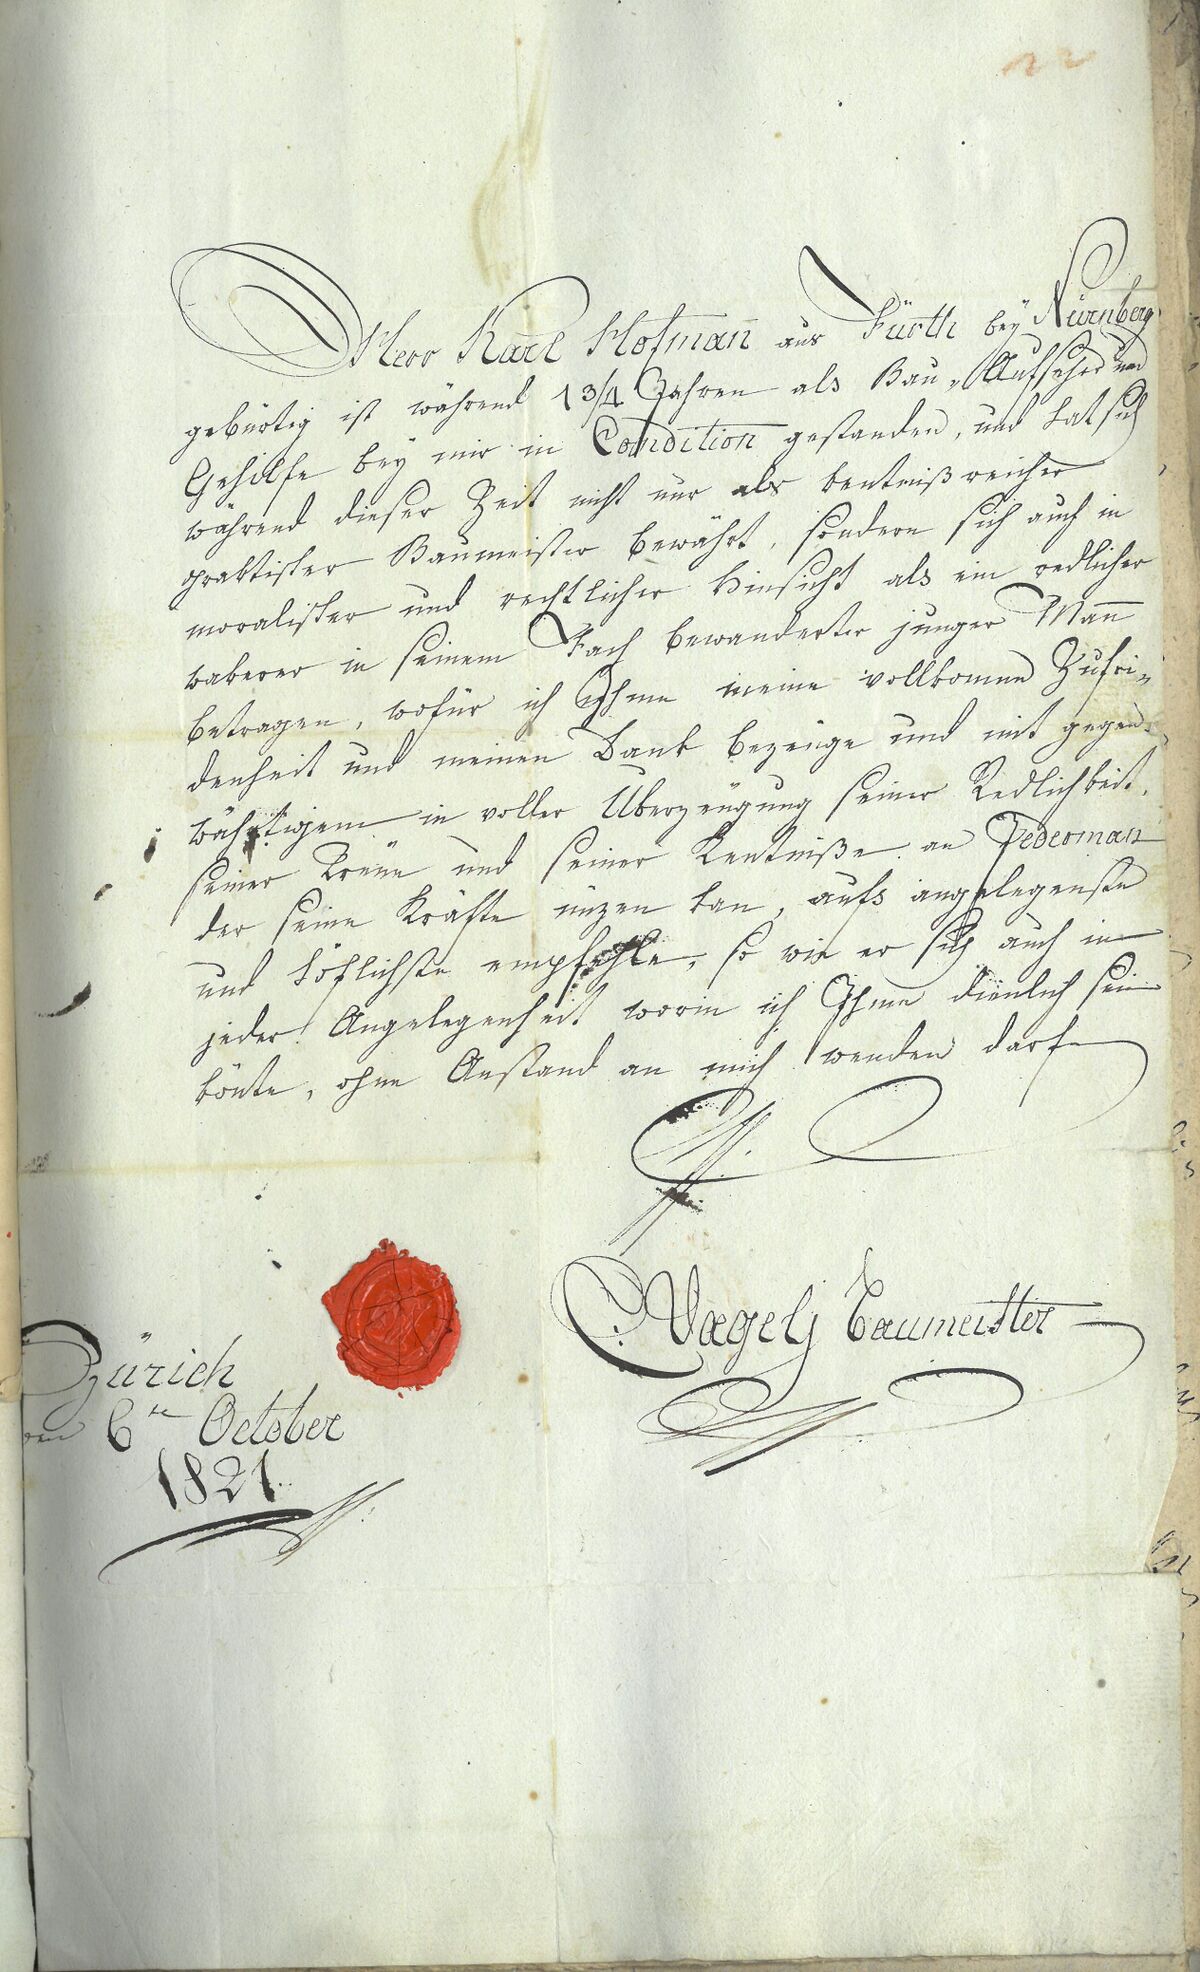 Herr Karl Hofman̄ aus Fürth bey Nürnberg
gebürtig ist während 1 3/4 Jahren als Bau-Aufseher und
Gehilfe bey mir in Condition gestanden, und hat sich
während dieser Zeit nicht nur als kentnißreicher
praktischer Baumeister bewährt, sondern sich auch in
moralischer und rechtlicher Hinsicht als ein redlicher
wakerer in seinem Fach bewanderter junger Man̄
betragen, wofür ich Ihme meine vollkomne Zufri-
denheit und meinen Dank bezeüge und mit gegen-
währtigem in voller Uberzeügung seiner Redlichkeit,
seiner Treüe und seiner Kentniße an Jederman
der seine Kräfte nüzen kan, aufs angelegenste
und höflichste empfehle, so wie er sich auch in
jeder Angelegenheit worin ich Ihme dienlich sein
könte, ohne Anstand an mich wenden darf
Vægely Baumeister
Zürich
den 6te October
1821.